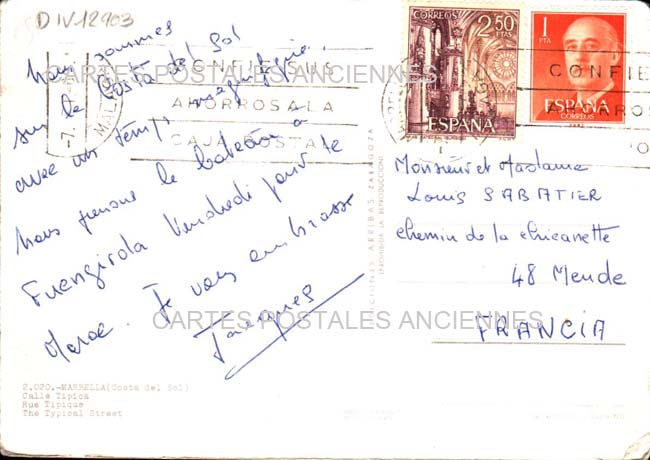 D IV 12903
Nous sommes
sur la Costa del Sol
avec un temps magnifique.
Nous prenons le bateau à
Fuengirola Vendredi pour le
Maroc. Je vous embrasse
Jacques
CORREOS
2,50
PTAS
ESPAÑA
1
PTA
ESPAÑA
CORREOS
CONFIE SUS
AHORROS A LA
CAJA POSTAL
CONFIE
AHORROS
PO
Monsieur et Madame
Louis SABATIER
chemin de la chicanette
48 Mende
FRANCIA
CARTES POSTALES ANCIENNES
CARTES POSTALES ANCIENNES
ARRIBAS ZARAGOZA
(PROHIBIDA LA REPRODUCCION)
2.020.-MARBELLA (Costa del Sol)
Calle Típica
Rue Tipique
The Typical Street